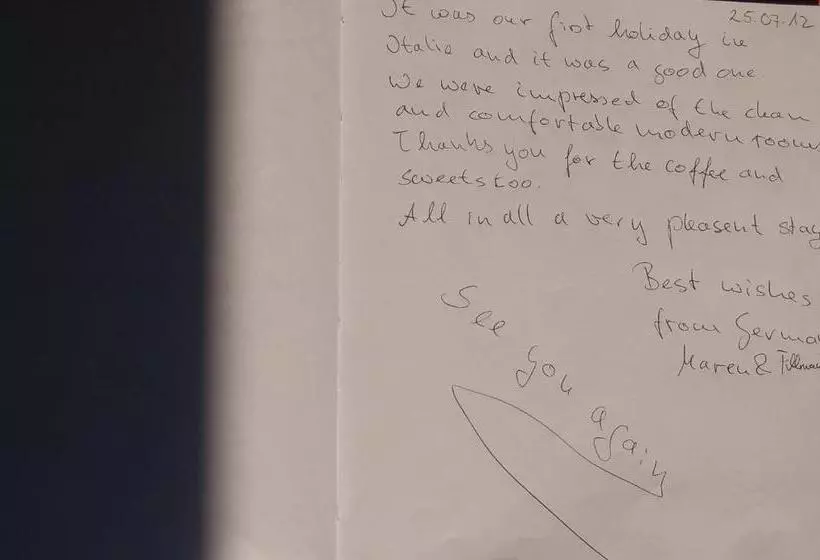 25.07.12
It was our first holiday in
Italie and it was a good one.
We were impressed of the clean
and comfortable modern rooms
Thanks you for the coffee and
sweets too.
All in all a very pleasent stay
Best wishes
from Germa
Maren &
See you again